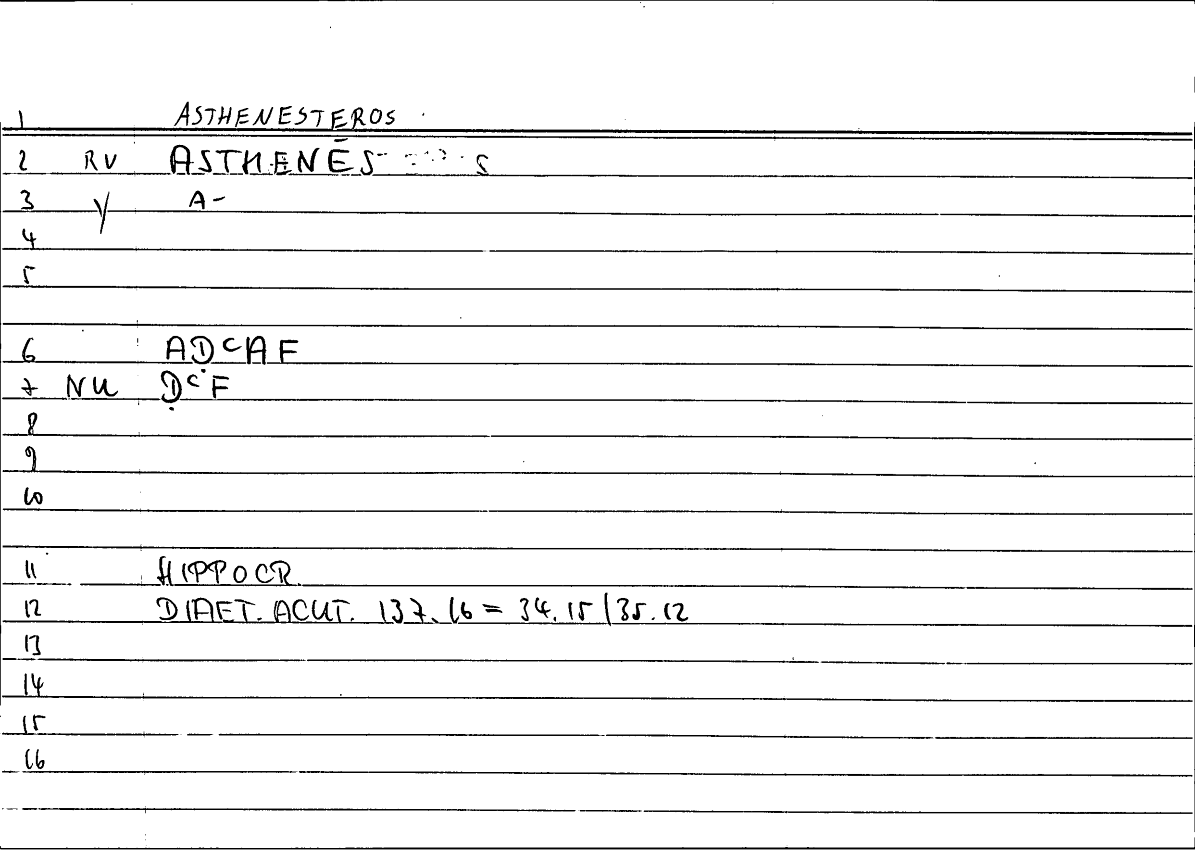 1 ASTHENESTEROS
2 RV
3 y A-
4
5
6 ADCAF
7 NU DCF
8
9
10
11 HIPPOCR.
12 DIAET. ACUT. 137.16 = 34.15/35.12
13
14
15
16